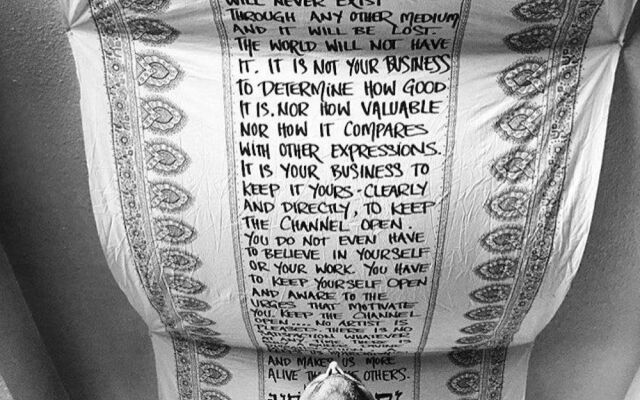 WILL NEVER EXIST
THROUGH ANY OTHER MEDIUM
AND IT WILL BE LOST.
THE WORLD WILL NOT HAVE
IT. IT IS NOT YOUR BUSINESS
TO DETERMINE HOW GOOD
IT IS. NOR HOW VALUABLE
NOR HOW IT COMPARES
WITH OTHER EXPRESSIONS.
IT IS YOUR BUSINESS TO
KEEP IT YOURS - CLEARLY
AND DIRECTLY, TO KEEP
THE CHANNEL OPEN.
YOU DO NOT EVEN HAVE
TO BELIEVE IN YOURSELF
OR YOUR WORK. YOU HAVE
TO KEEP YOURSELF OPEN
AND AWARE TO THE
URGES THAT MOTIVATE
YOU. KEEP THE CHANNEL
OPEN.... NO ARTIST IS
PLEASED. THERE IS NO
SATISFACTION WHATEVER
AT ANY TIME. THERE IS
AND MAKES US MORE
ALIVE OTHERS.